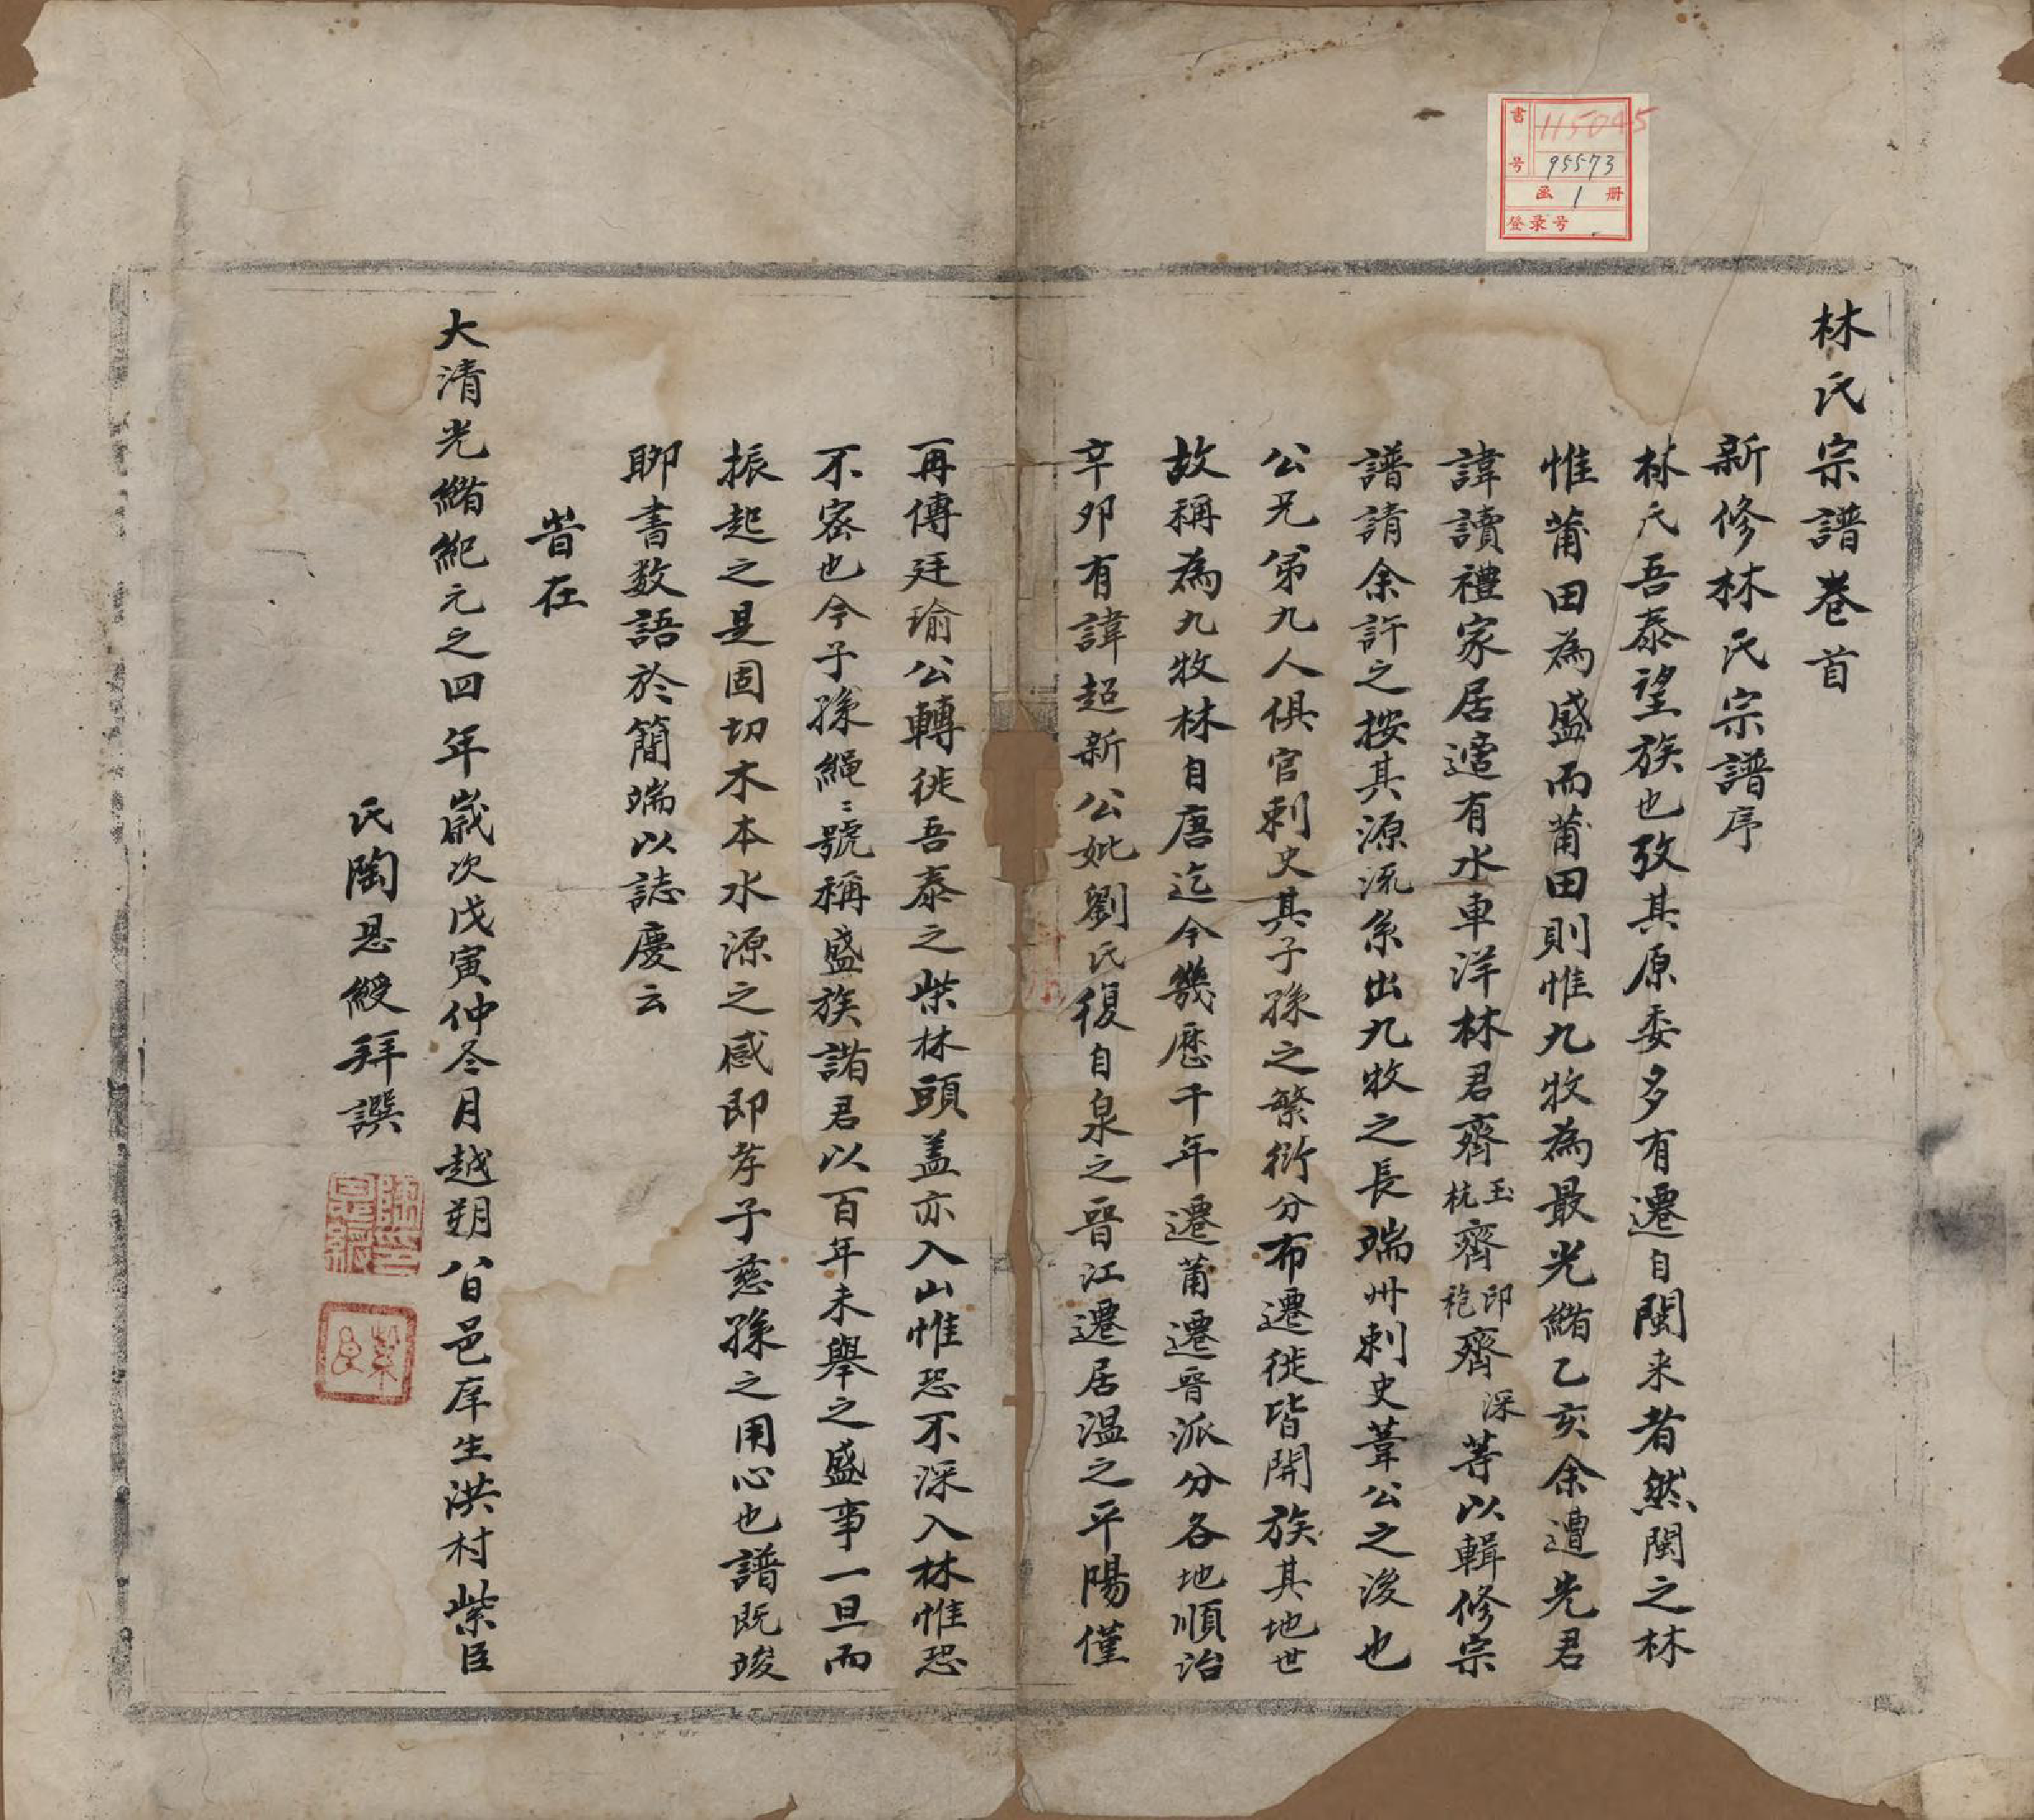 林氏宗譜卷首
新修林氏宗譜序
林氏吾泰望族也攷其原委多有遷自閩来者然閩之林
惟莆田為盛而莆田則惟九牧為最光緒乙亥余遭先君
諱讀禮家居適有水車洋林君齊玉齊杭齊印齊袍齊深等以輯修宗
譜請余許之按其源流系出九牧之長端州刺史葦公之後也
公兄弟九人俱官刺史其子孫之繁衍分布遷徙皆開族其地世
故稱為九牧林自唐迄今幾歷千年遷莆遷晉派分各地順治
辛卯有諱超新公妣劉氏復自泉之晉江遷居温之平陽僅
再傳廷瑜公轉徙吾泰之柴林頭盖亦入山惟恐不深入林惟恐
不密也今子孫繩〻號稱盛族諸君以百年未舉之盛事一旦而
振起之是固切木本水源之感即孝子慈孫之用心也譜既竣
聊書数語於簡端以誌慶云
旹在
大清光緒紀元之四年歲次戊寅仲冬月越朔八日邑庠生洪村紫臣
氏陶恩綬拜譔
書号 115045
95573
函 1 册
登录号